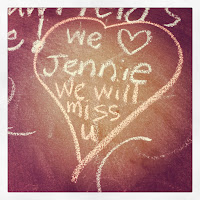 we ♡
Jennie
We will
miss
u